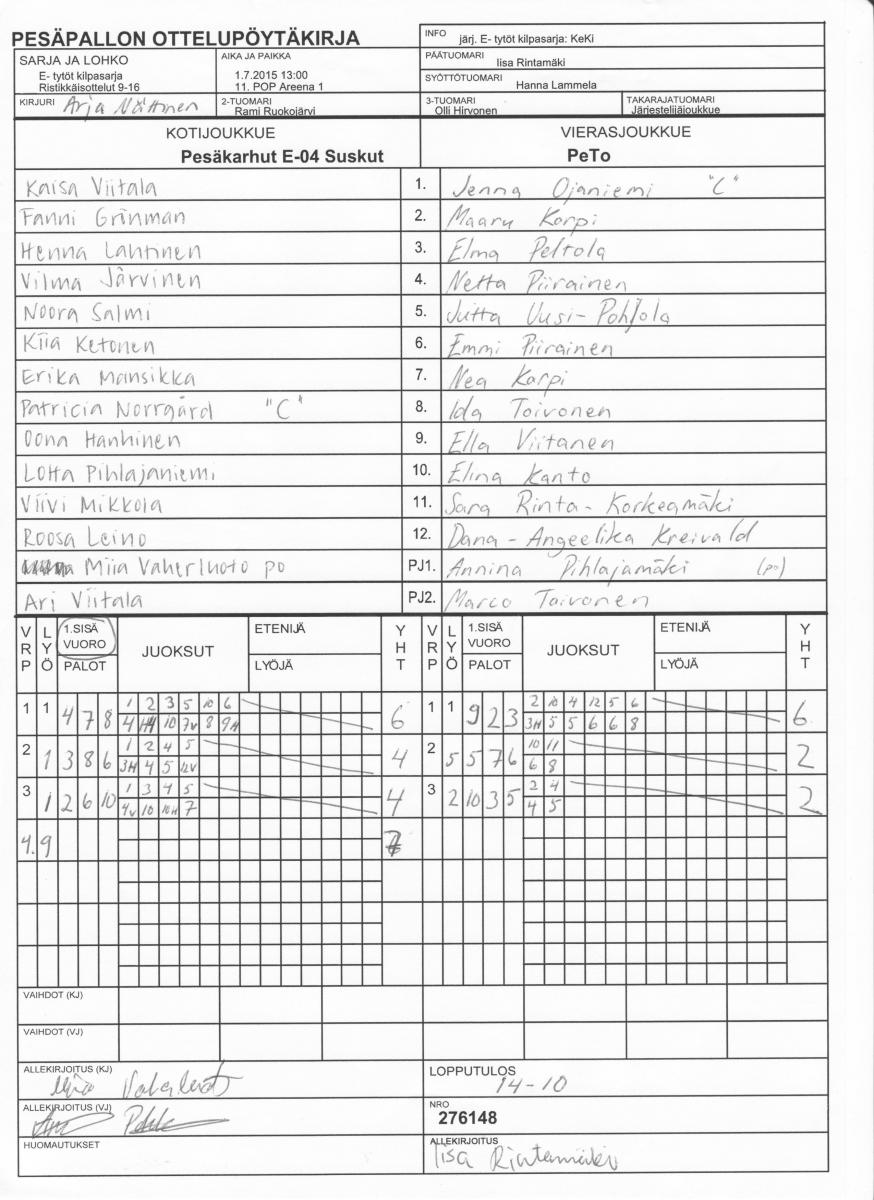 PESÄPALLON OTTELUPÖYTÄKIRJA
INFO järj. E- tytöt kilpasarja: KeKi
SARJA JA LOHKO
E- tytöt kilpasarja
Ristikkäisottelut 9-16
AIKA JA PAIKKA
1.7.2015 13:00
11. POP Areena 1
PÄÄTUOMARI
Iisa Rintamäki
SYÖTTÖTUOMARI
Hanna Lammela
KIRJURI Arja Nättinen
2-TUOMARI
Rami Ruokojärvi
3-TUOMARI
Olli Hirvonen
TAKARAJATUOMARI
Järjestelijäjoukkue
KOTIJOUKKUE VIERASJOUKKUE
Pesäkarhut E-04 Suskut PeTo
Kaisa Viitala 1. Jenna Ojaniemi "C"
Fanni Grinman 2. Maaru Korpi
Henna Lahtinen 3. Elma Peltola
Vilma Järvinen 4. Netta Piirainen
Noora Salmi 5. Jutta Uusi-Pohjola
Kiia Ketonen 6. Emmi Piirainen
Erika Mansikka 7. Nea Korpi
Patricia Norrgård "C" 8. Ida Toivonen
Oona Hanhinen 9. Ella Viitanen
Lotta Pihlajaniemi 10. Elina Kanto
Viivi Mikkola 11. Sara Rinta-Korkeamäki
Roosa Leino 12. Dana-Angeelika Kreivald
Miia Vaherluoto po PJ1. Annina Pihlajamäki (po)
Ari Viitala PJ2. Marco Toivonen
VRP LYÖ 1.SISÄ VUORO PALOT JUOKSUT ETENIJÄ LYÖJÄ YHT VRP LYÖ 1.SISÄ VUORO PALOT JUOKSUT ETENIJÄ LYÖJÄ YHT
1 1 4 7 8 1 2 3 5 10 6 6 1 1 9 2 3 2 10 4 12 5 6 6
4 10 7V 8 9H 3H 5 5 6 6 8
2 1 3 8 6 1 2 4 5 4 2 5 5 7 6 10 11 2
3H 4 5 12V 6 8
3 1 2 6 10 1 3 4 5 4 3 2 10 3 5 2 4 2
4V 10 10H 7 4 5
4. 9
VAIHDOT (KJ)
VAIHDOT (VJ)
ALLEKIRJOITUS (KJ) Miia Vaherluoto
LOPPUTULOS
14-10
ALLEKIRJOITUS (VJ)
NRO
276148
HUOMAUTUKSET
ALLEKIRJOITUS
Iisa Rintamäki